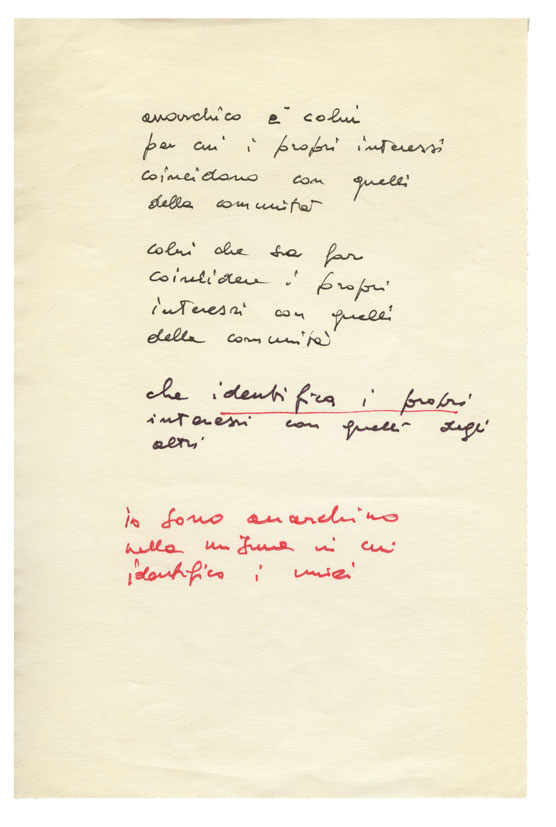 anarchico è colui
per cui i propri interessi
coincidono con quelli
della comunità
colui che sa far
coincidere i propri
interessi con quelli
della comunità
che identifica i propri
interessi con quelli degli
altri
io sono anarchico
nella misura in cui
identifico i miei